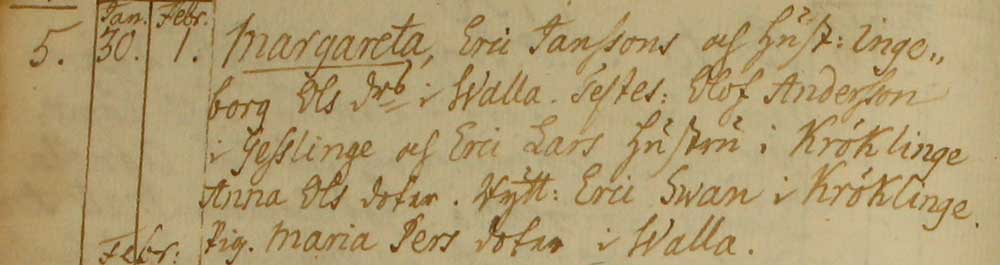 Jan. Febr.
5. 30. 1. Margareta, Eric Janssons och Hust: Inge„
borg Ols drs i Walla. Testes: Olof Anderson
i Gesslinge och Eric Lars Hustru i Kröklinge
Anna Ols doter. Vytt: Eric Swan i Kröklinge.
Febr: Pig. Maria Pers doter i Walla.